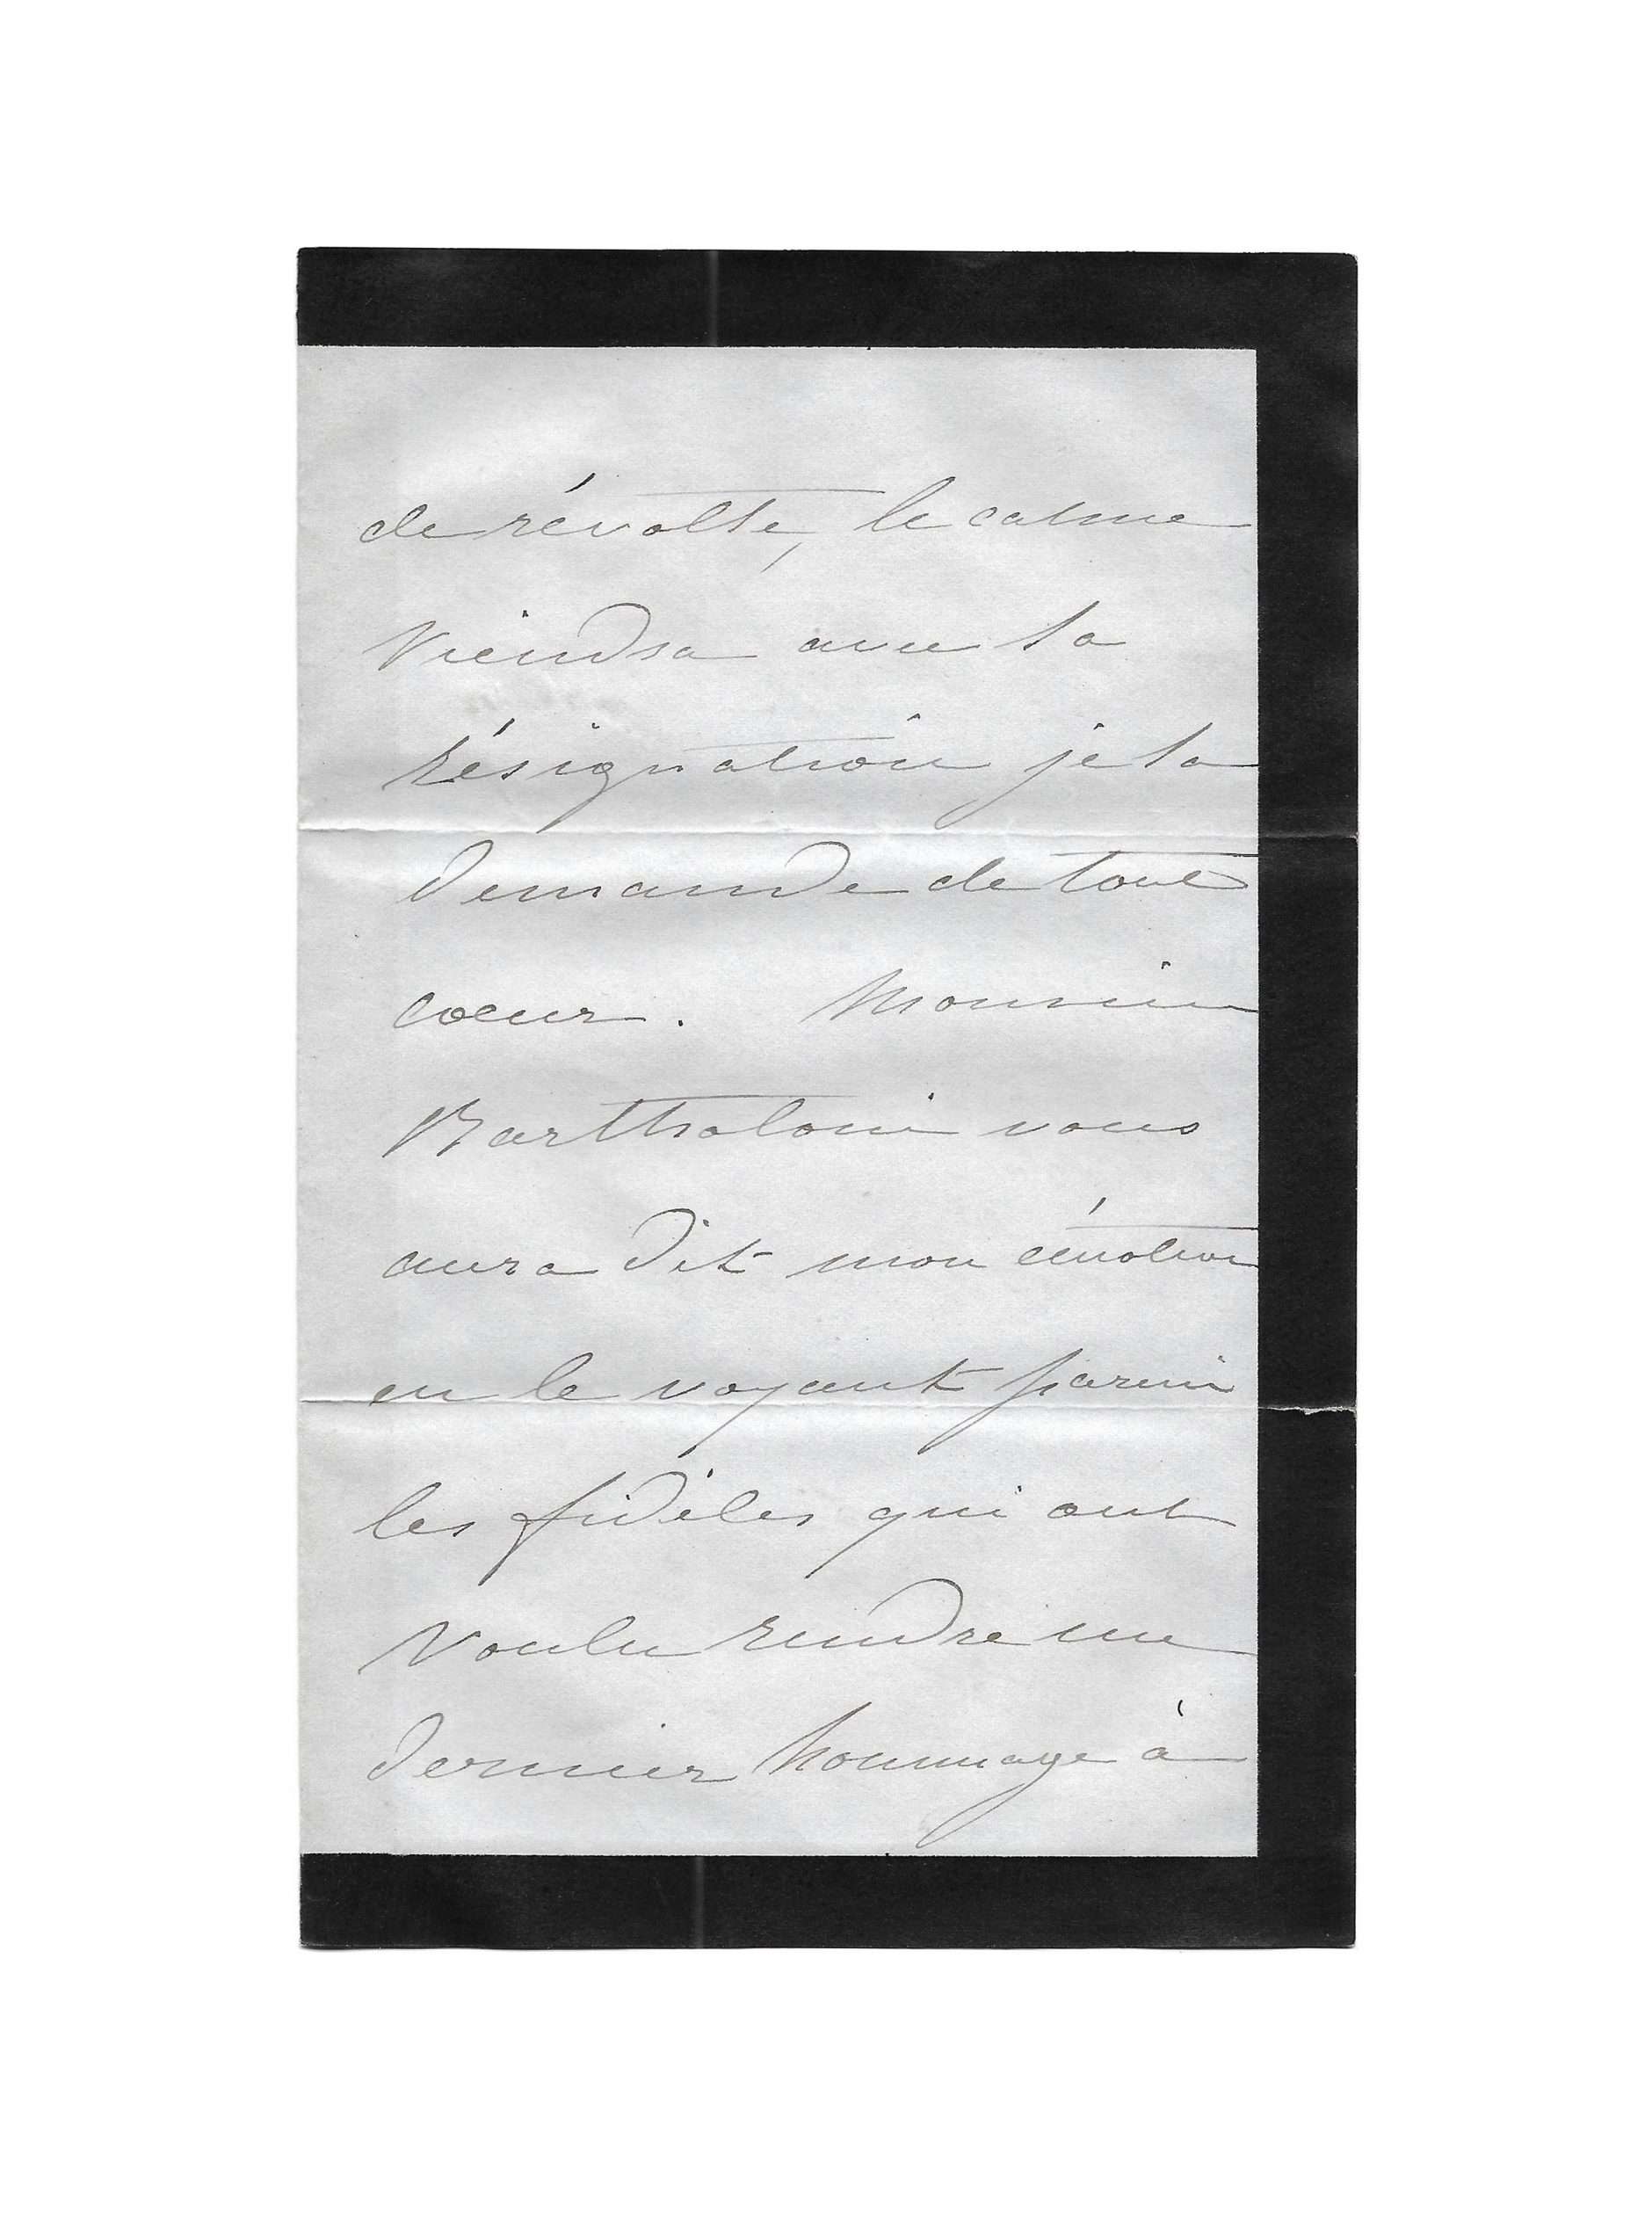 de révolte, le calme
viendra avec la
résignation je la
demande de tout
coeur. Monsieur
Bartholoni vous
aura dit mon émotion
en le voyant parmi
les fidèles qui ont
voulu rendre un
dernier hommage à